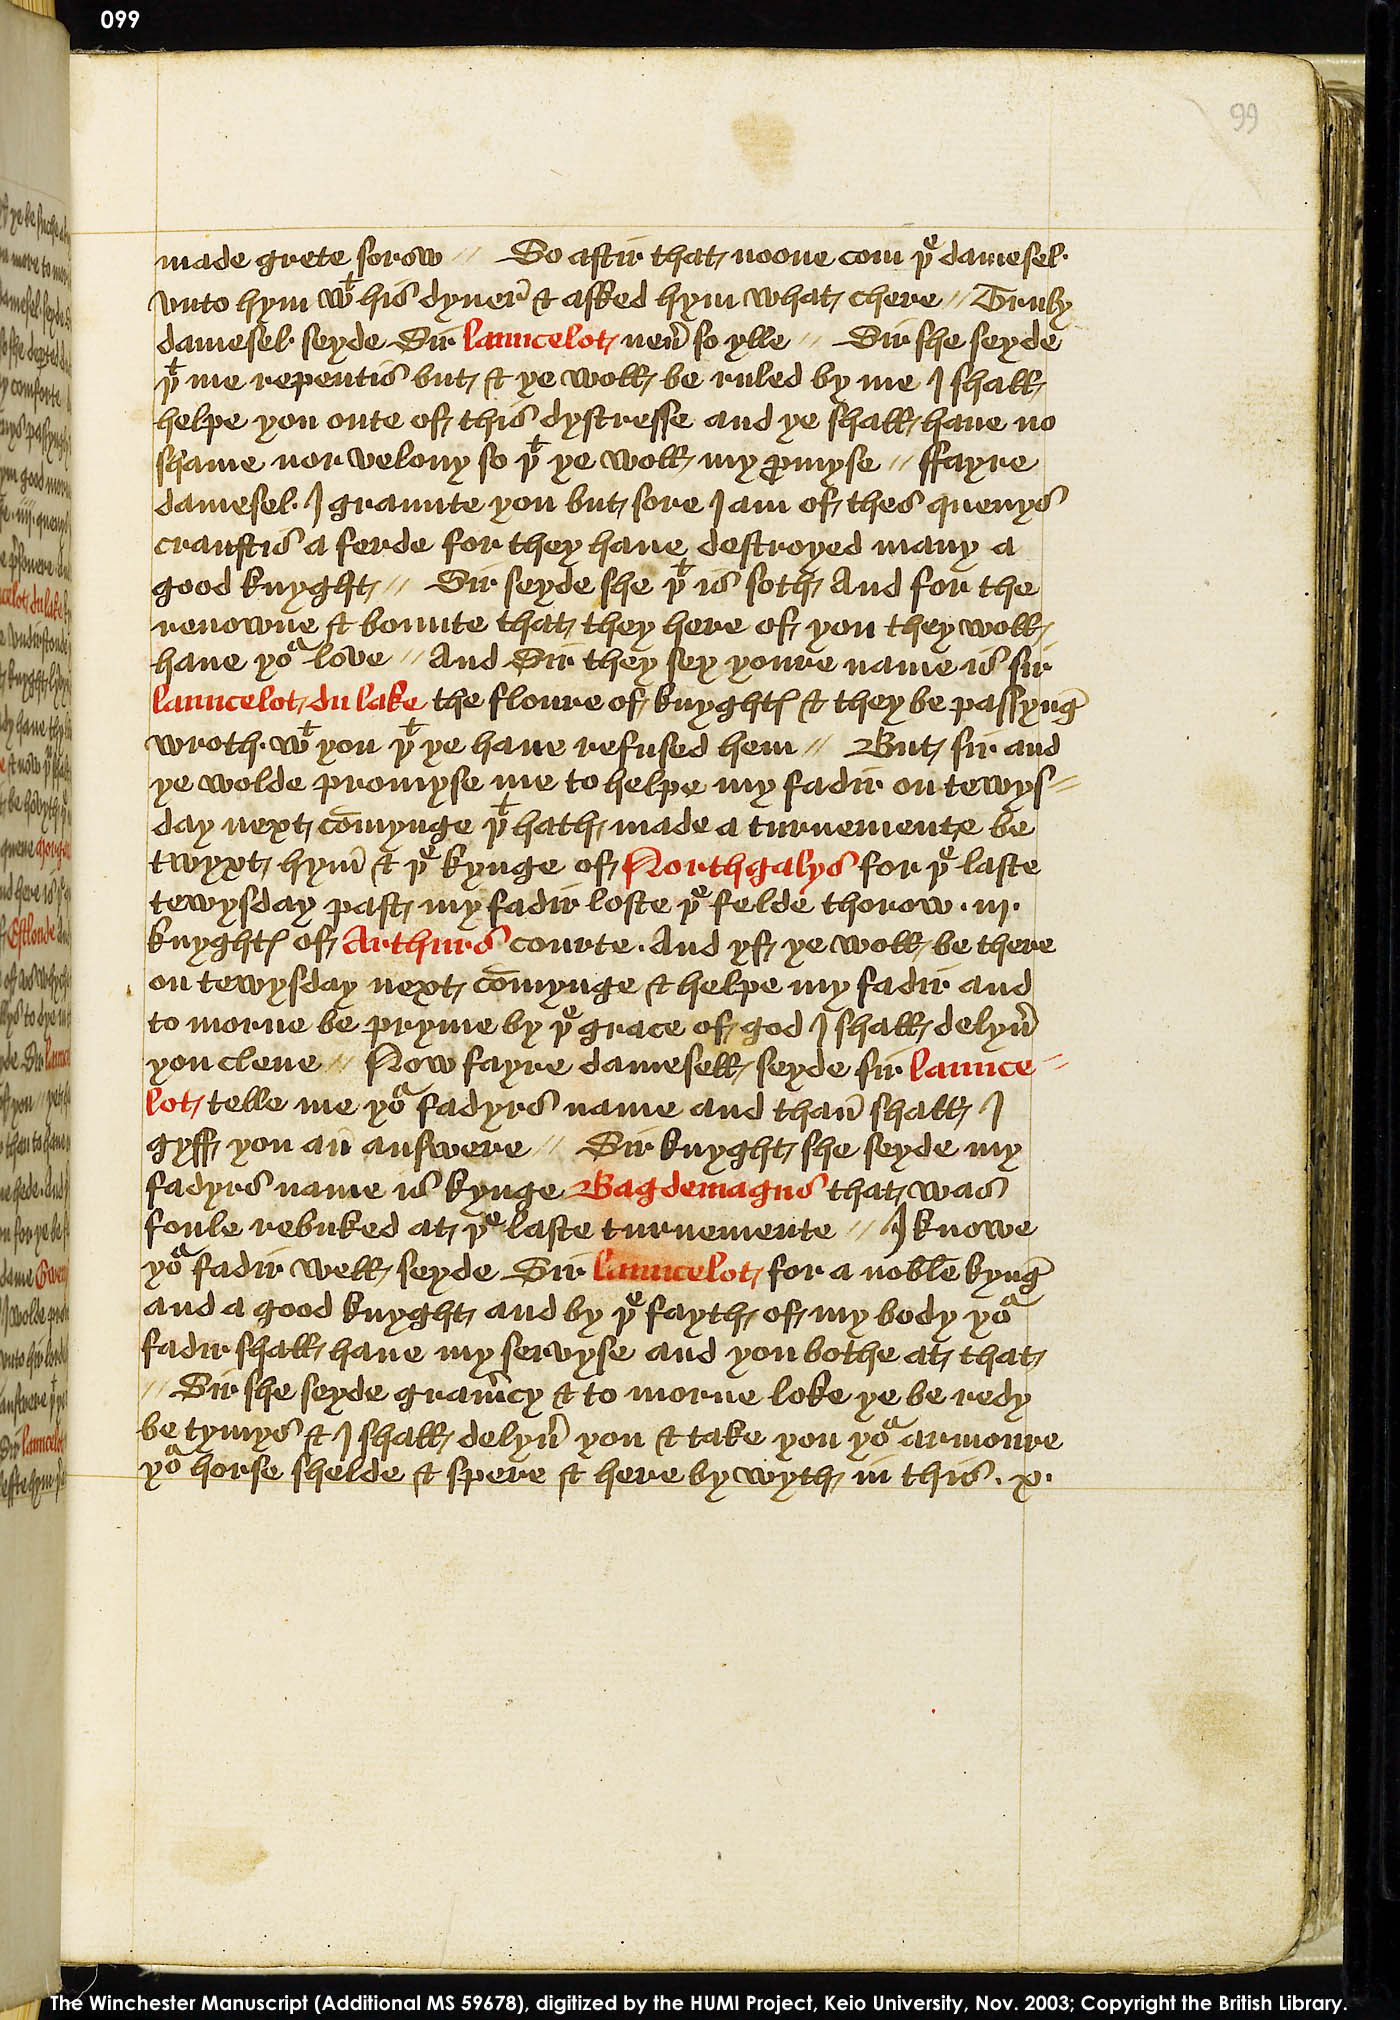 099
99
made grete sorow // So aftir that noone com þe damesel
vnto hym wt his dyner & asked hym what chere // Truly
damesel seyde Sir launcelot neuer so ylle // Sir she seyde
þt me repentis but & ye woll be ruled by me I shall
helpe you oute of this dystresse and ye shall haue no
shame nor velony so þt ye woll my promyse // ffayre
damesel I graunte you but sore I am of thes quenys
crauftis a ferde for they haue destroyed many a
good knyght // Sir seyde she þt is soth And for the
renowne & bounte that they here of you they woll
haue yor love // And Sir they sey youre name is sir
launcelot du lake the floure of knyghtes & they be passyng
wroth wt you þt ye haue refused hem // But sir and
ye wolde promyse me to helpe my fadir on tewys=
day next comynge þt hath made a turnemente be
twyxt hym & þe kynge of Northgalys for þe laste
tewysday past my fadir loste þe felde thorow .iij.
knyghtes of Arthurs courte. And yf ye woll be there
on tewysday next comynge & helpe my fadir and
to morne be pryme by þe grace of god I shall delyuer
you clene // Now fayre damesell seyde sir launce=
lot telle me yor fadyrs name and than shall I
gyff you an answere // Sir knyght she seyde my
fadyrs name is kynge Bagdemagus that was
foule rebuked at þe laste turnemente // I knowe
yor fadir well seyde Sir launcelot for a noble kyng
and a good knyght and by þe fayth of my body yor
fadir shall haue my servyse and you bothe at that
// Sir she seyde gramercy & to morne loke ye be redy
be tymys & I shall delyuer you & take you yor armoure
yor horse shelde & spere & here by wyth in this .x.
The Winchester Manuscript (Additional MS 59678), digitized by the HUMI Project, Keio University, Nov. 2003; Copyright the British Library.